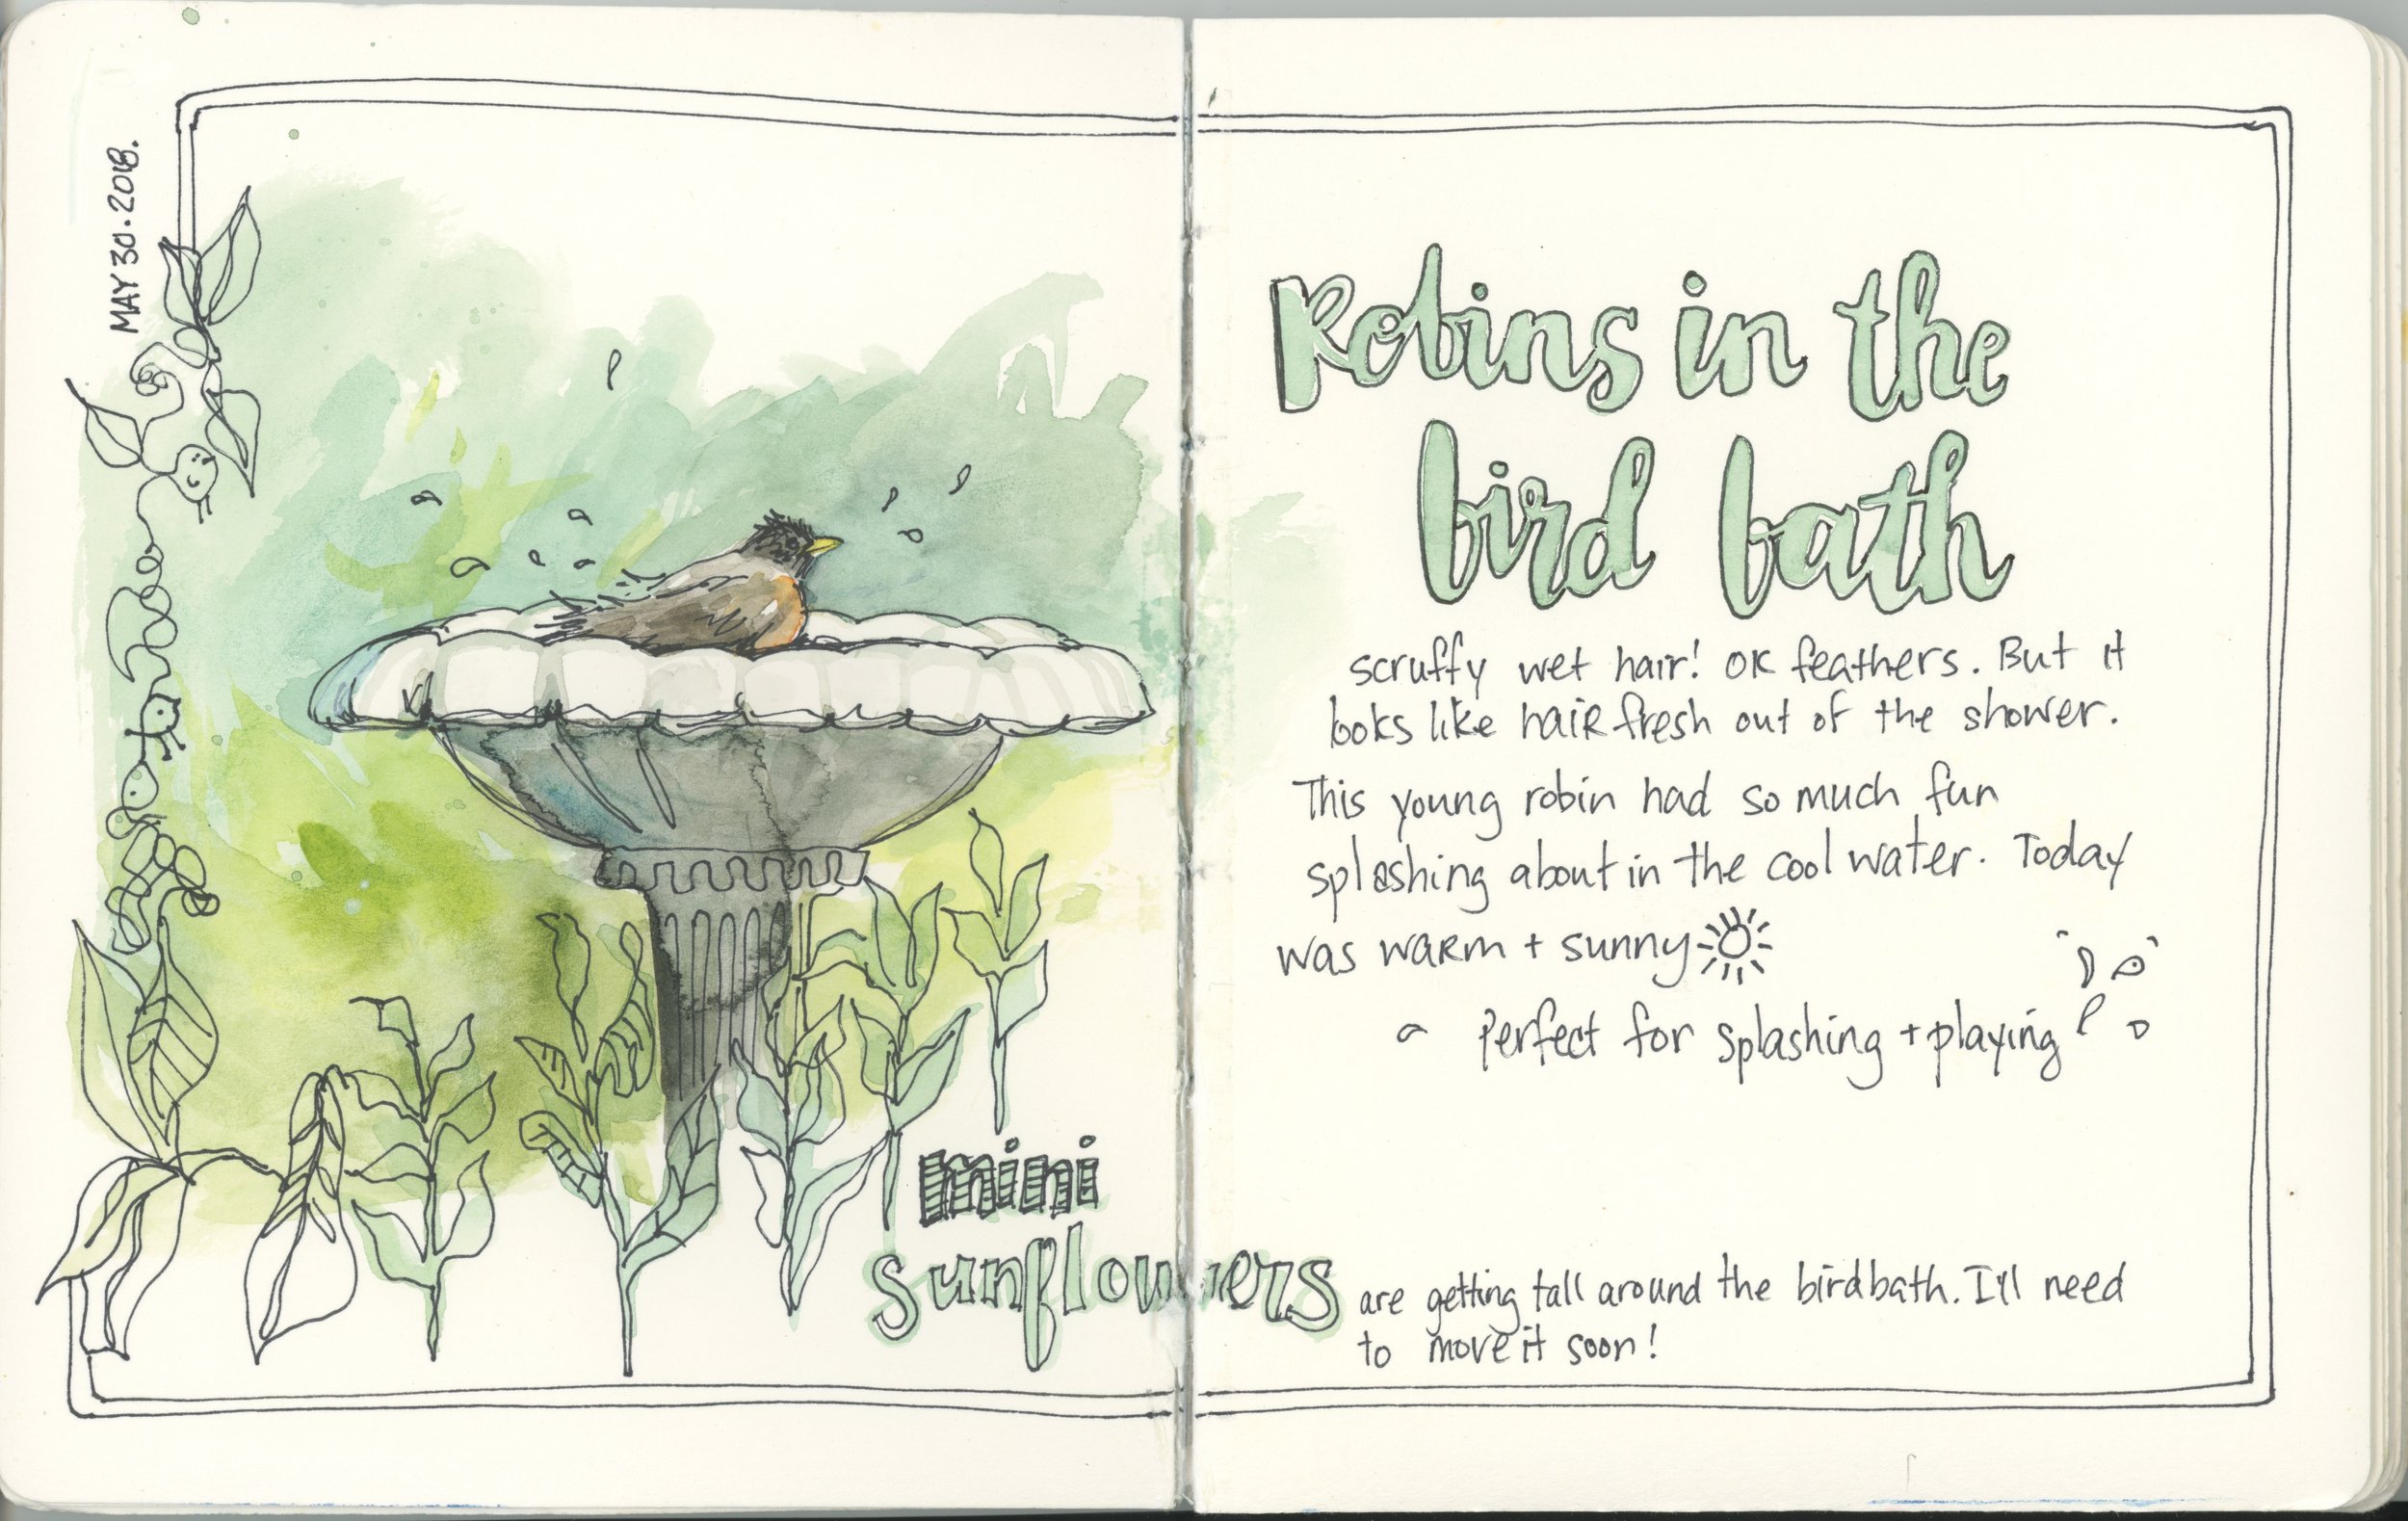 MAY 30. 2018.
Robins in the
bird bath
scruffy wet hair! OK feathers. But it
looks like hair fresh out of the shower.
This young robin had so much fun
splashing about in the cool water. Today
was warm + sunny
Perfect for splashing + playing
mini
sunflowers are getting tall around the birdbath. I'll need
to move it soon!